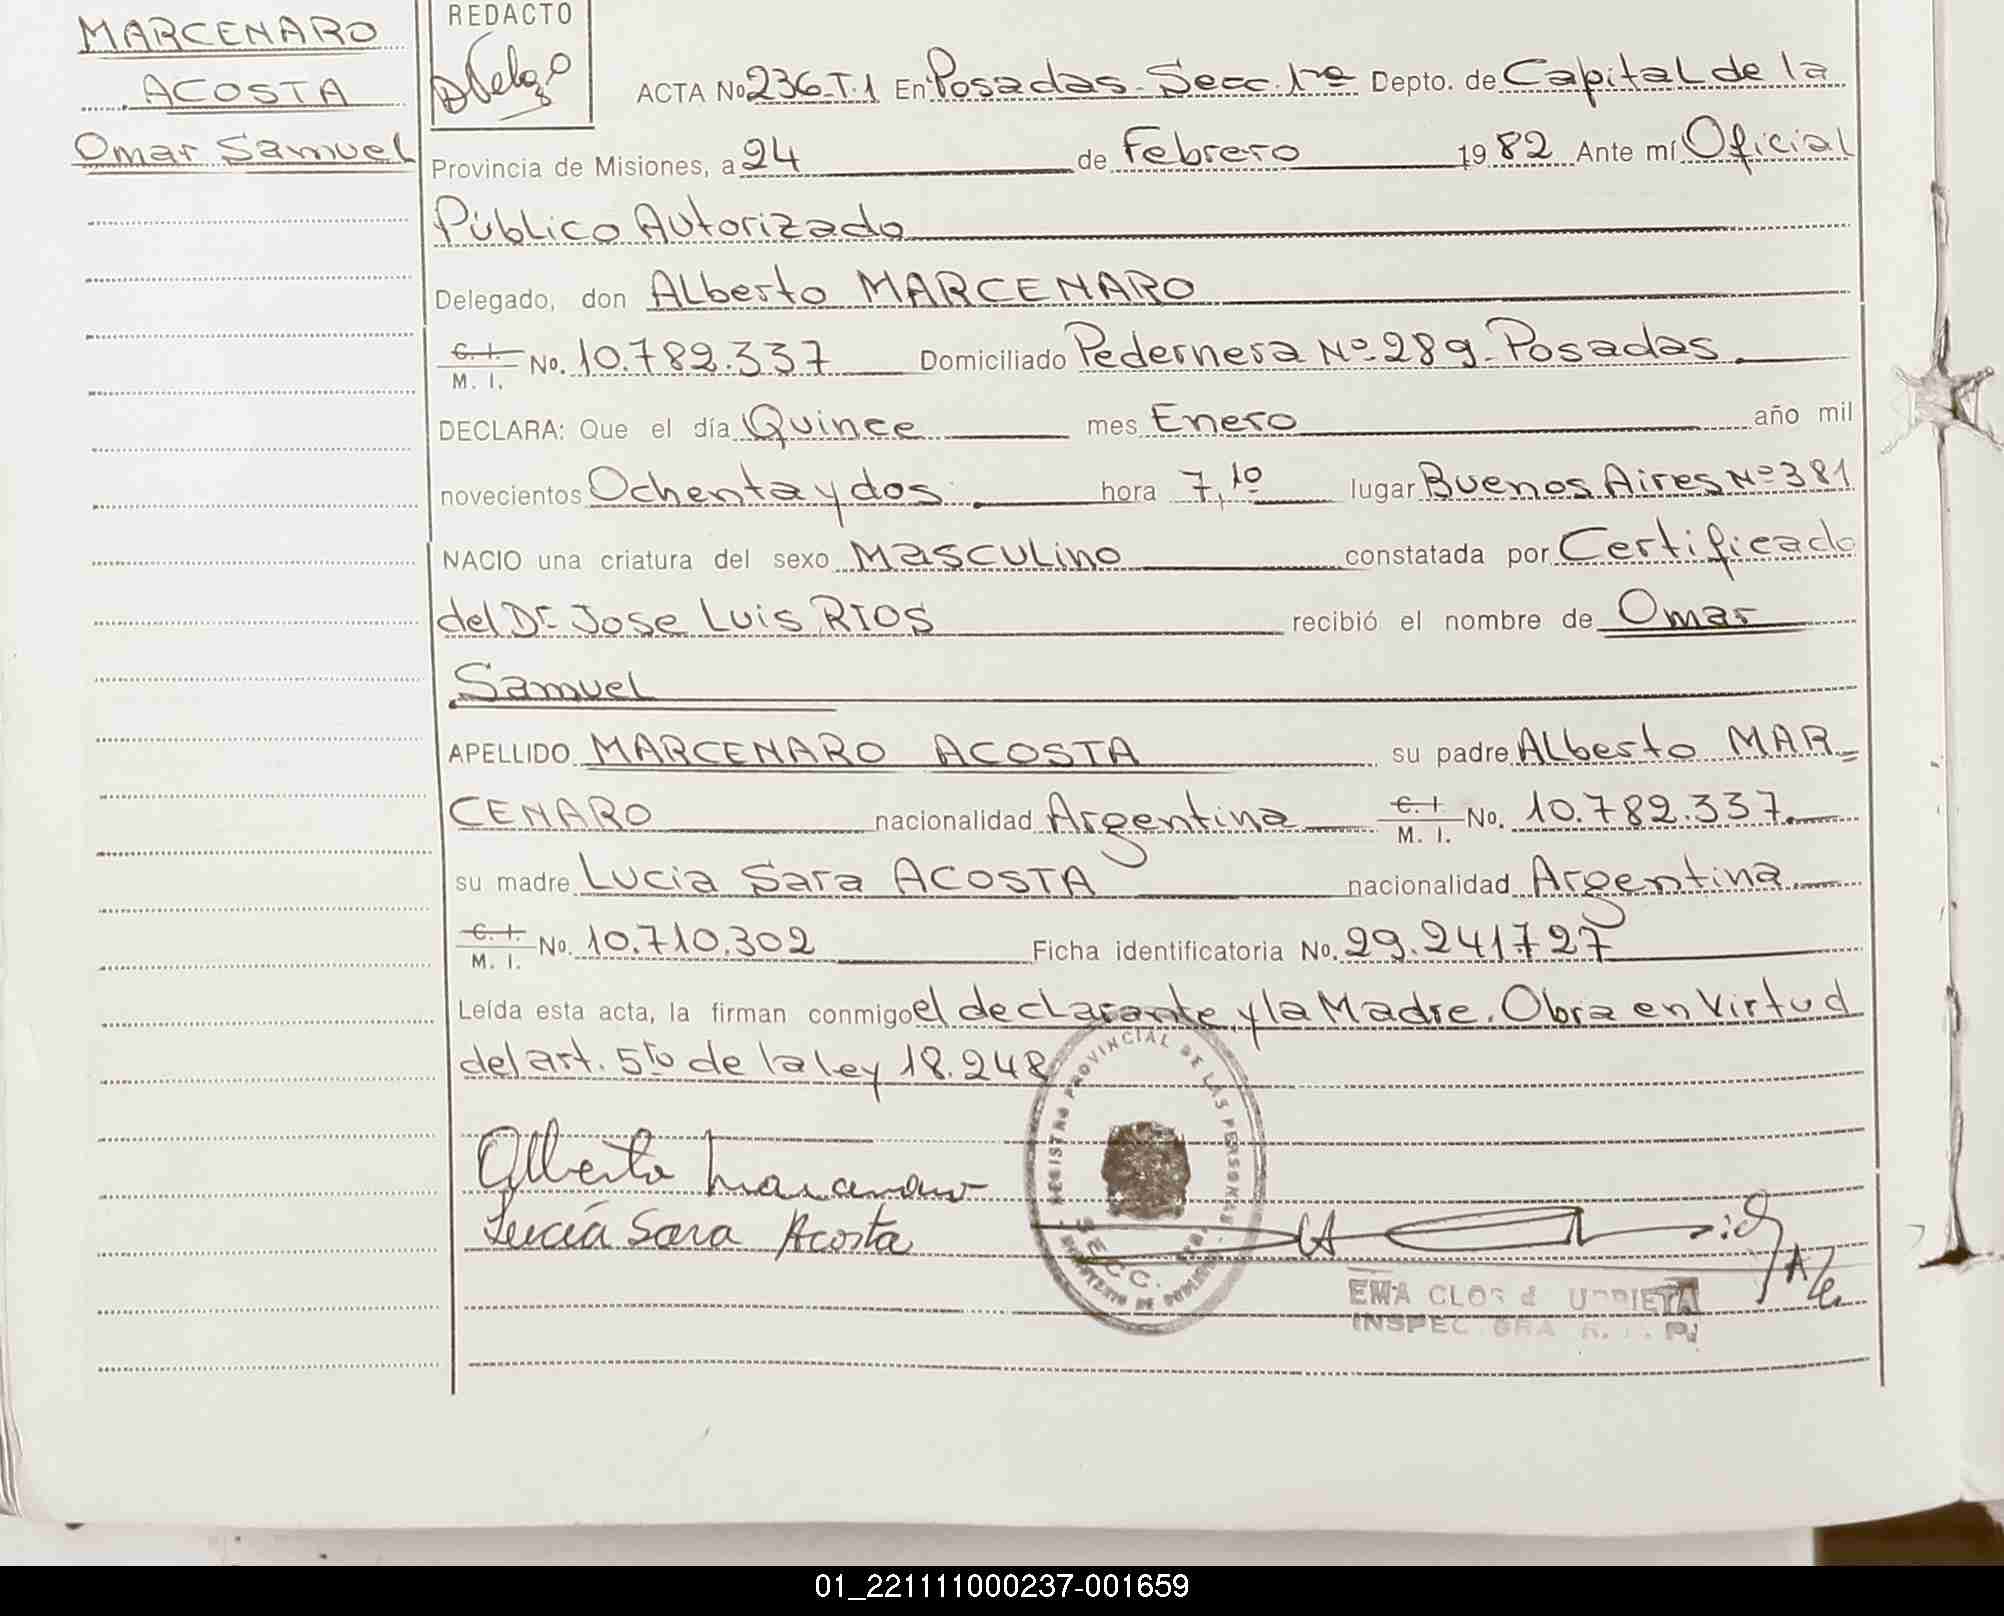 MARCENARO
ACOSTA
Omar Samuel
REDACTO
ACTA No 236-T.1 En Posadas-Secc.1ra Depto. de Capital de la
Provincia de Misiones, a 24 de Febrero 1982 Ante mí Oficial
Público Autorizado
Delegado, don Alberto MARCENARO
C. I. / M. I. No. 10.782.337 Domiciliado Pedernera Nº 289-Posadas.
DECLARA: Que el día Quince mes Enero año mil
novecientos Ochenta y dos. hora 7,10 lugar Buenos Aires Nº 381
NACIO una criatura del sexo Masculino constatada por Certificado
del Dr. Jose Luis RIOS recibió el nombre de Omar
Samuel
APELLIDO MARCENARO ACOSTA su padre Alberto MAR=
CENARO nacionalidad Argentina C. I. / M. I. No. 10.782.337.
su madre Lucia Sara ACOSTA nacionalidad Argentina
C. I. / M. I. No. 10.710.302 Ficha identificatoria No. 29.241.727
Leída esta acta, la firman conmigo el declarante y la Madre. Obra en Virtud
del art. 5to de la ley 18.248
Alberto Marcenaro
Lucía Sara Acosta
REGISTRO PROVINCIAL DE LAS PERSONAS
SECC.
EMA
01_221111000237-001659